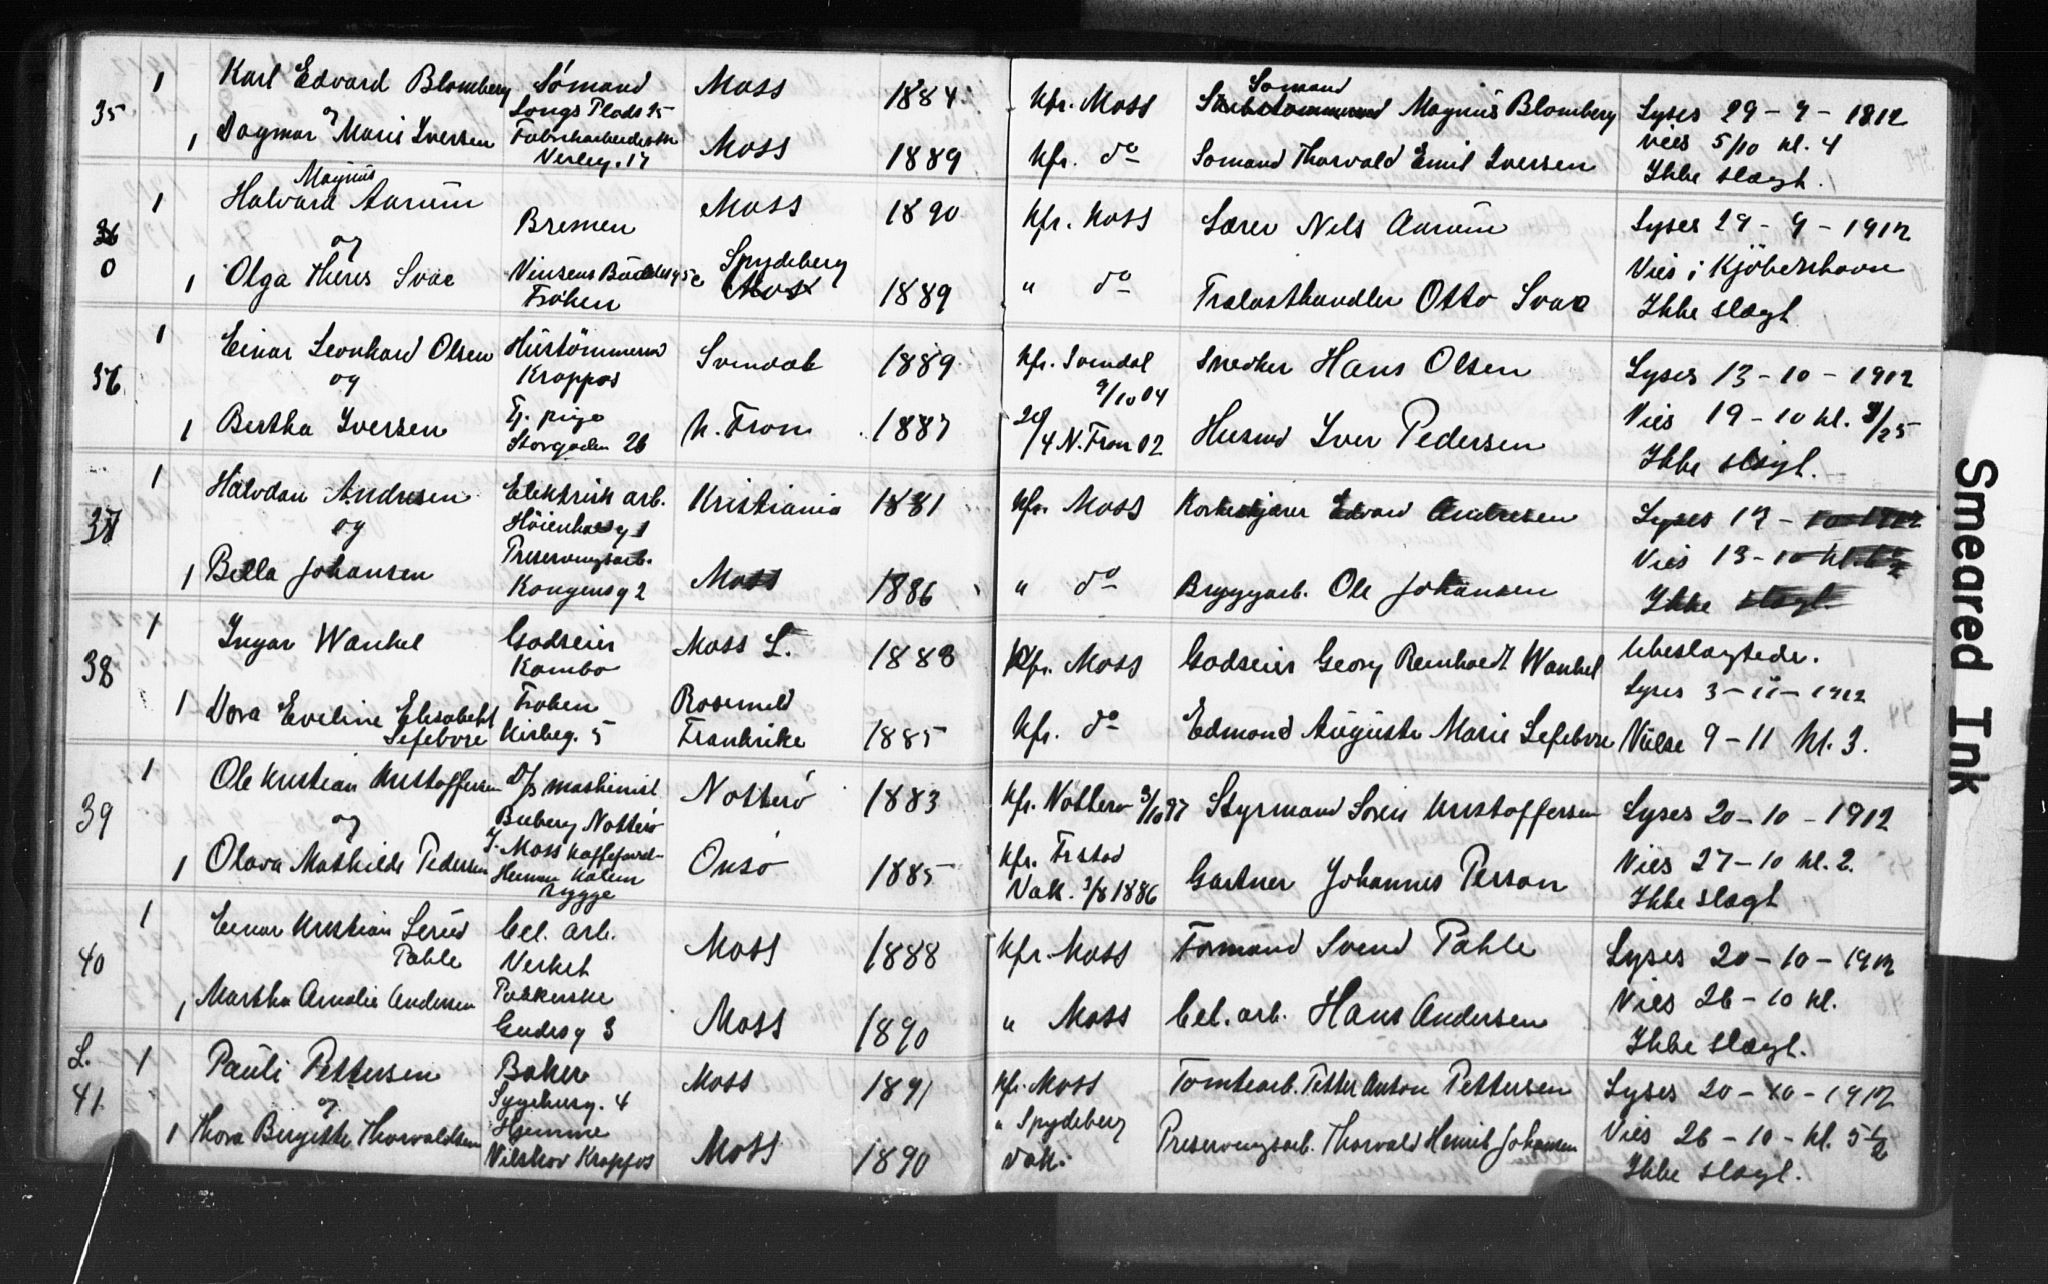 35 1 Karl Edvard Blomberg Sömand Moss 1884 kfr. Moss Sömand Magnus Blomberg Lyses 29-9-1912
og Longs Plads 25 Vies 5/10 kl. 4
1 Dagmar Marie Iversen Fabrikarbeiderske Moss 1889 kfr. do Sömand Thorvald Emil Iversen Ikke slægt.
Verleg. 17
36 1 Halvard Magnus Aarum Bremen Moss 1890 kfr. Moss Lærer Nils Aarum Lyses 29-9-1912
0 og Vies i Kjöbenhavn
1 Olga Theres Svae Fröken Spydeberg 1889 " do Trælasthandler Otto Svae Ikke slægt
36 1 Einar Leonhard Olsen Hustömmermand Svindal 1889 kfr. Svindal Snedker Hans Olsen Lyses 13-10-1912
og Krappos 9/10 04
1 Bertha Iversen Tj. pige N. Fron 1887 20/4 N. Fron 02 Husmd Iver Pedersen Vies 19-10 kl.
Storgaden 26 Ikke slægt.
37 1 Halvdan Andresen Elektrisk arb. Kristiania 1881 kfr. Moss Edvard Andresen Lyses 13-10-1912
og Höienhalsg 1 Vies 13-10 kl.
1 Bella Johansen Preservengsarb. Moss 1886 " do Bryggarb. Ole Johansen Ikke slægt.
Kongensg 2
38 1 Ingar Wankel Godseier Moss L. 1883 kfr. Moss Godseier Georg Reinholdt Wankel Ubeslægtede.
Kambo Lyses 3-11-1912
1 Dora Eveline Elisabeht Fröken
Lefebvre Kirkeg. 5 Frankrike 1885 kfr. do Edmond Auguste Marie Lefebvre Vielse 9-11 kl. 3.
39 1 Ole Kristian Kristoffersen D/s maskinist Nötterö 1883 kfr. Nötterö 3/10 97 Styrmand Sören Kristoffersen Lyses 20-10-1912
og Buberg Nötterö
1 Olava Mathilde Pedersen Onsö 1885 kfr. Fr.stad Gartner Johannes Person Vies 27-10 kl. 2.
Rygge Vak. 3/8 1886 Ikke slægt
40 1 Einar Kristian Lerud Cel. arb. Moss 1888 kfr. Moss Formand Svend Pahle Lyses 20-10-1912
Pahle Verket
1 Martha Amalie Andersen Pakkerske Moss 1890 " Moss Cel. arb. Hans Andersen Vies 26-10 kl.
Gudesg 3 Ikke slægt.
L. 41 1 Pauli Pettersen Baker Moss 1891 kfr. Moss Tomtearb. Petter Anton Pettersen Lyses 20-10-1912
og Sygehusg. 4
1 Thora Birgitte Thorvaldsen Hjemme Moss 1890 " Spydeberg Preservengsarb. Thorvald Henrik Johansen Vies 26-10-kl. 5 1/2
Nilskov Krapfos vak. Ikke slægt.
Smeared Ink